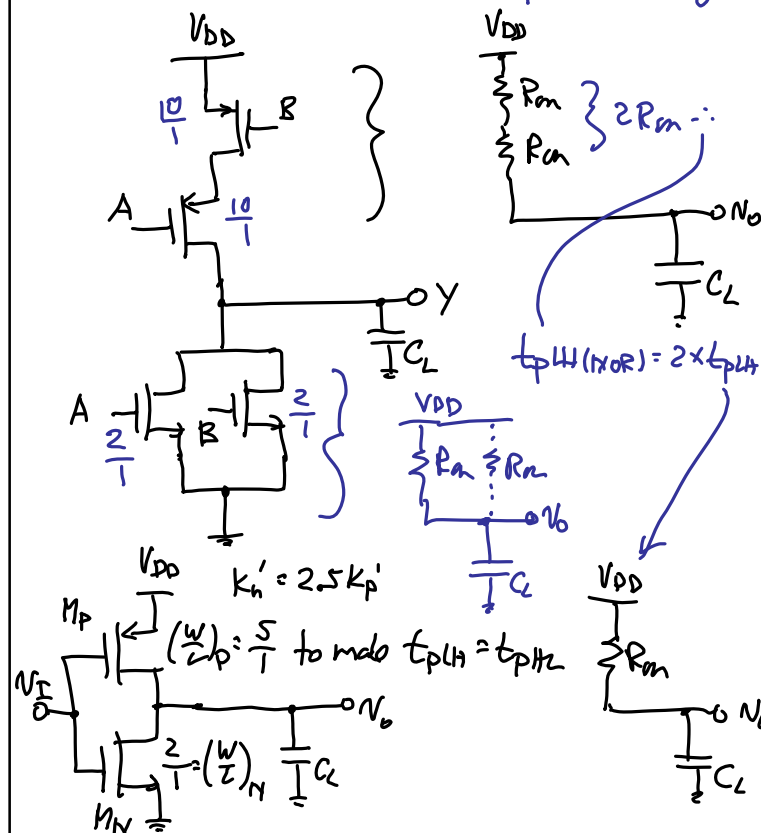 VDD
10/1
B
A
10/1
Y
CL
A
2/1
B
2/1
VDD
Ron
Ron
2Ron ∴
No
CL
tpLH(NOR) = 2 x tpLH
VDD
Ron
Ron
Vo
CL
VDD
Ron
CL
Kn' = 2.5 Kp'
VDD
MP
(W/L)P = 5/1 to make tpLH = tpHL
VI
Vo
2/1 = (W/L)N
CL
MN